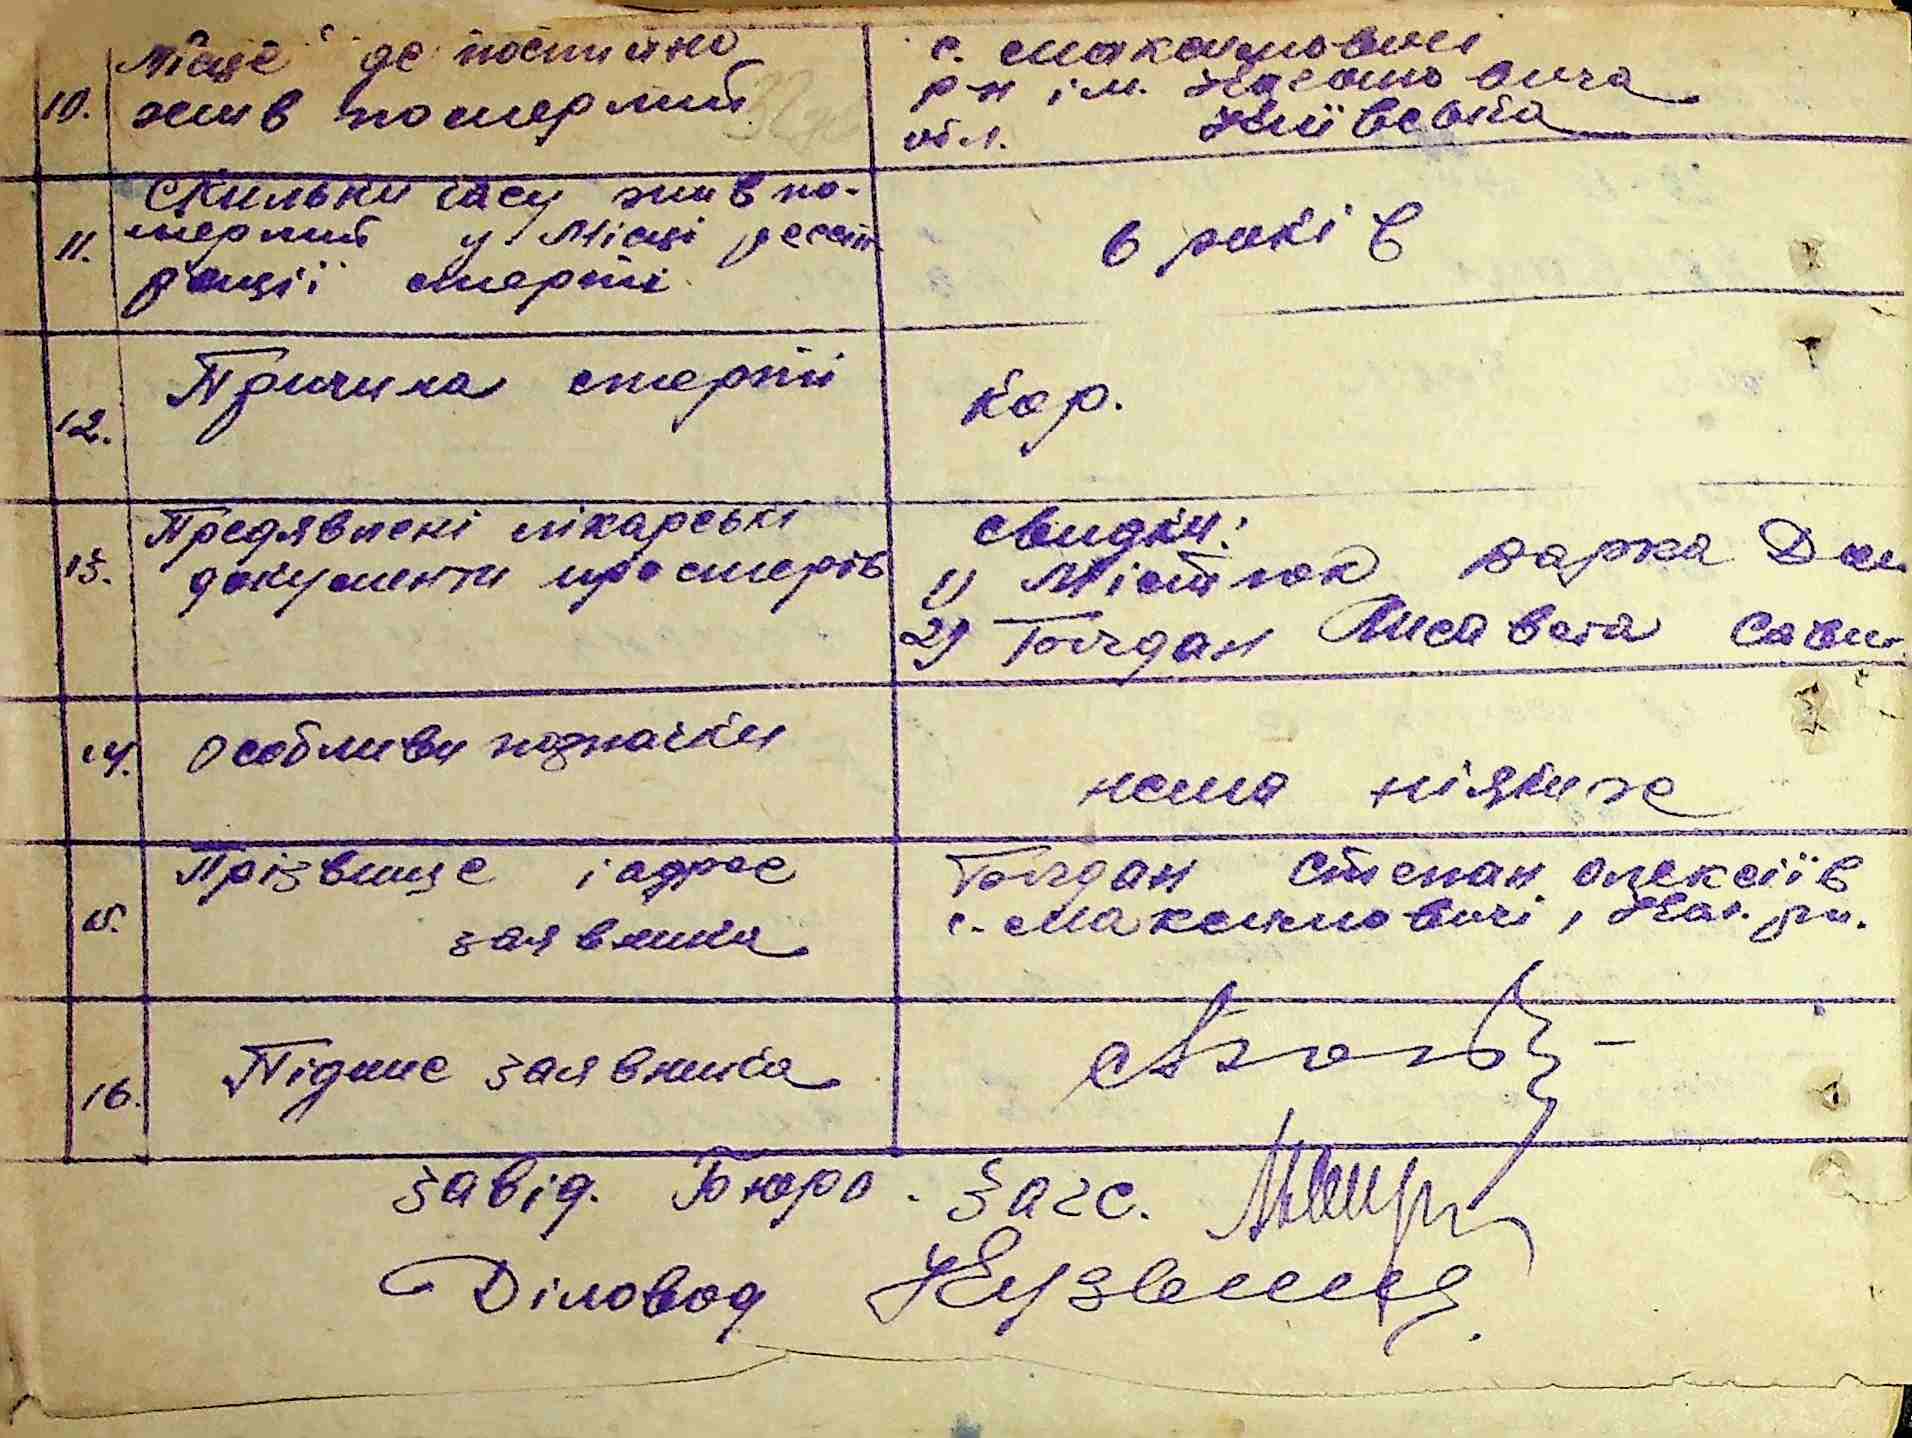 10. Місце де постійно
жив померлий
с. Максимовичі
р-н ім. Кагановича
обл. Київська
11. Скильки часу жив по-
мерлий у Місці рези
денції смерти
6 років
12. Причина смерти
Кор.
13. Предявлені лікарські
документи про смерть
свидки:
1) Містюк Варка Дан
2) Богдан Лисавета Сави
14. Особливи позначки
нема ніяких
15. Прізвище і адрес
заявника
Богдан Степан Олексіїв
с. Максимовичі, Каг. рн.
16. Підпис заявника
Завід. Бюро. Загс.
Діловод